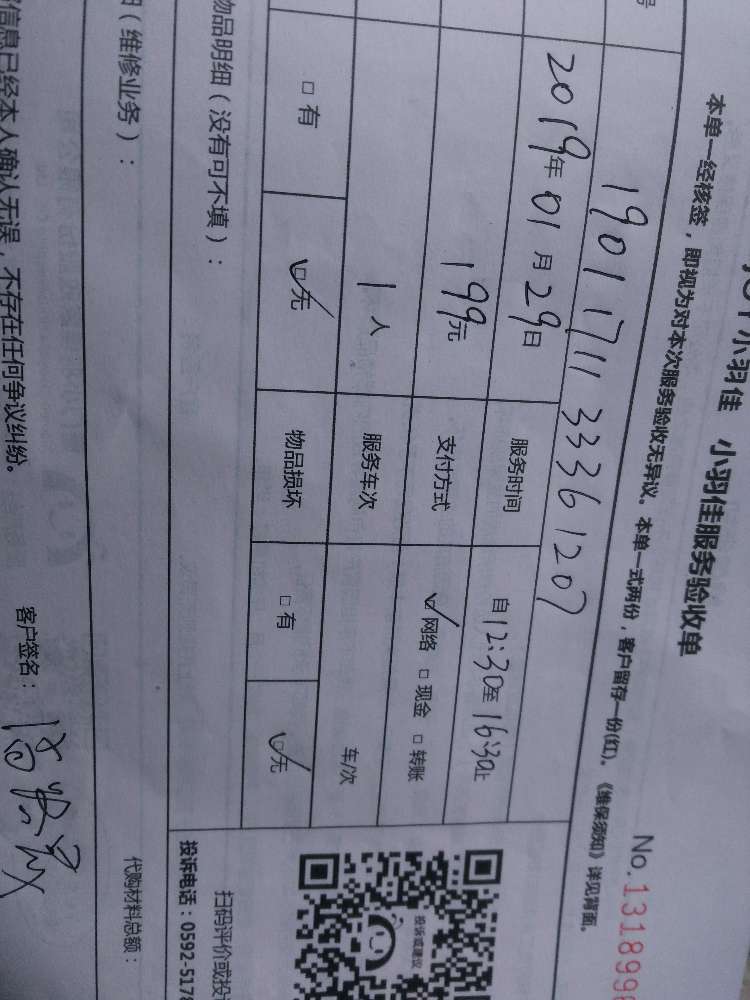 小羽佳 小羽佳服务验收单
No.1318999
本单一经核签，即视为对本次服务验收无异议。本单一式两份，客户留存一份(红)。《维保须知》详见背面。
号 1901171133361207
2019年01月29日 服务时间 自12:30至16:30止
199元 支付方式 ☑网络 □现金 □转账
1人 服务车次 车/次
□有 ☑无 物品损坏 □有 ☑无
物品明细（没有可不填）：
（维修业务）：
代购材料总额：
信息已经本人确认无误，不存在任何争议纠纷。
客户签名：
投诉或建议
扫码评价或投
投诉电话：0592-5178